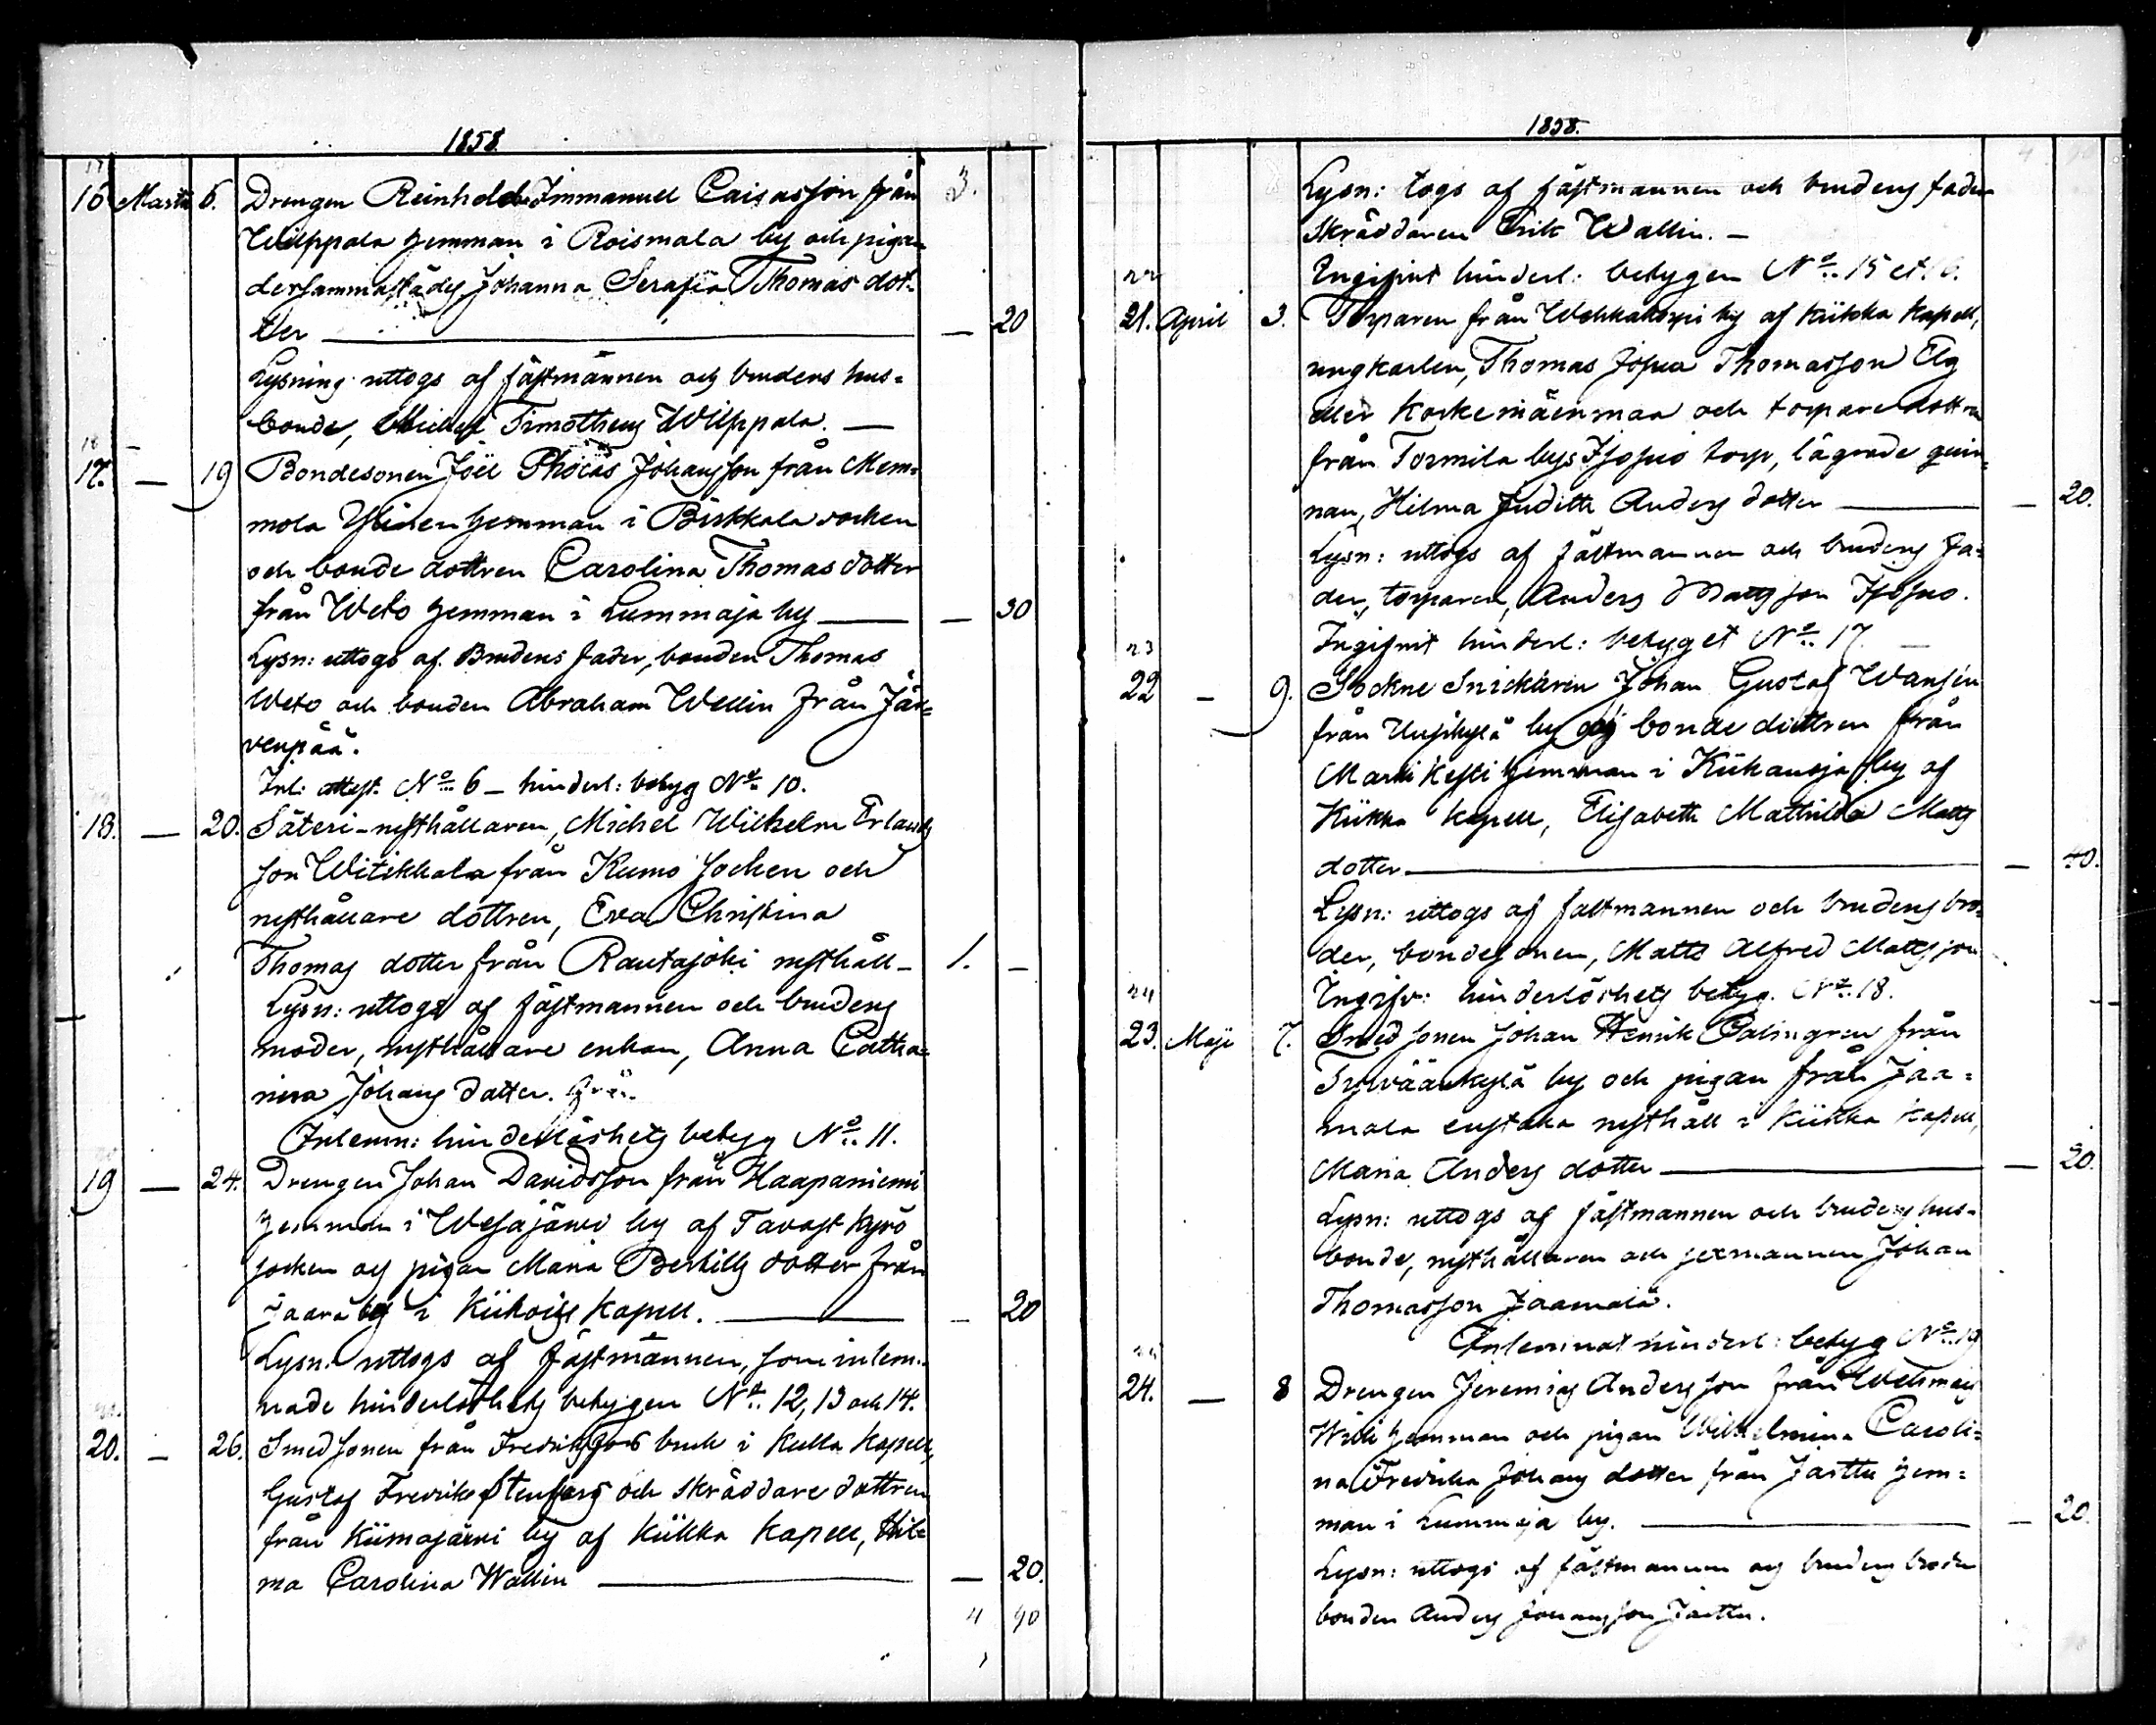 1858.
16 Martii 6. Drengen Reinhold Immanuel Caisasson från 3.
Wilppala hemman i Roismala by och pigan
dersammastädes Johanna Serafia Thomas dot-
ter — 20
Lysning uttogs af fästmannen och brudens hus-
bonde, Michel Timotheus Wilppala. —
17. — 19 Bondesonen Joël Phocas Johansson från Mem-
mola hemman i Birkkala socken
och bonde dottren Carolina Thomas dotter
från Weto hemman i Lummaja by — 30
Lysn: uttogs af Brudens fader, bonden Thomas
Weto och bonden Abraham Wellin från Jär-
venpää.
Inl: attest. No 6 – hinderl: betyg No 10.
18. — 20. Säteri-rusthållaren, Michel Wilhelm Erlands
son Witikkala från Kumo socken och
rusthållare dottren, Eva Christina
Thomas dotter från Rautajoki rusthåll – 1. —
Lysn: uttogs af fästmannen och brudens
moder, rusthållare enkan, Anna Catha-
rina Johans dotter.
Inlemn: hinderlöshets betyg No 11.
19 — 24. Drengen Johan Davidsson från Haapaniemi
hemman i Wesajärvi by af Tavast Kyrö
socken och pigan Maria Bertills dotter från
Jaara by i Kiikois Kapell. — 20
Lysn: uttogs af fästmannen, som inlem-
nade hinderlöshets betygen No 12, 13 och 14.
20. — 26. Smedsonen från Fredriksfors bruk i Kulla Kapell,
Gustaf Fredrik Stenfors och skräddare dottren
från Kiimajärvi by af Kiikka Kapell, Hil-
ma Carolina Wallin — 20.
4 90
1858.
Lysn: togs af fästmannen och brudens fader
skräddaren Erik Wallin. —
22 Ingifvit hinderl: betygen No 15 et 16.
21. April 3. Torparen från Wehkakorpi by af Kiikka Kapell,
ungkarlen, Thomas Josua Thomasson Elg
eller Korkemäenmaa och torpare dottren
från Tormila bys torp, lägrade qvin-
nan, Hilma Judith Anders dotter — 20.
Lysn: uttogs af fästmannen och brudens fa-
der, torparen, Anders Mattsson
23 Ingifvit hinderl: betyget No 17. —
22 — 9. Sockne Snickaren Johan Gustaf Wansén
från by och bonde dottren från
Marri Kesti hemman i Kiikanoja by af
Kiikka Kapell, Elisabeth Mathilda Matts
dotter — 40.
Lysn: uttogs af fästmannen och brudens bro-
der, bondesonen, Matts Alfred Mattsson
24 Ingifv: hinderlöshets betyg. No 18.
23. Maji 7. Smedsonen Johan Henrik Palmgren från
Tyrväänkylä by och pigan från Jaa-
mala rusthåll i Kiikka Kapell,
Maria Anders dotter — 20.
Lysn: uttogs af fästmannen och brudens hus-
bonde, rusthållaren och sexmannen Johan
Thomasson Jaamala.
Inlemnat hinderl: betyg No 19
24. — 8 Drengen Jeremias Andersson från
hemman och pigan Wilhelmina Caroli-
na Fredrika Johans dotter från Jarttu hem-
man i Lummaja by. — 20.
Lysn: uttogs af fästmannen och brudens broder
bonden Anders Johansson Jarttu.